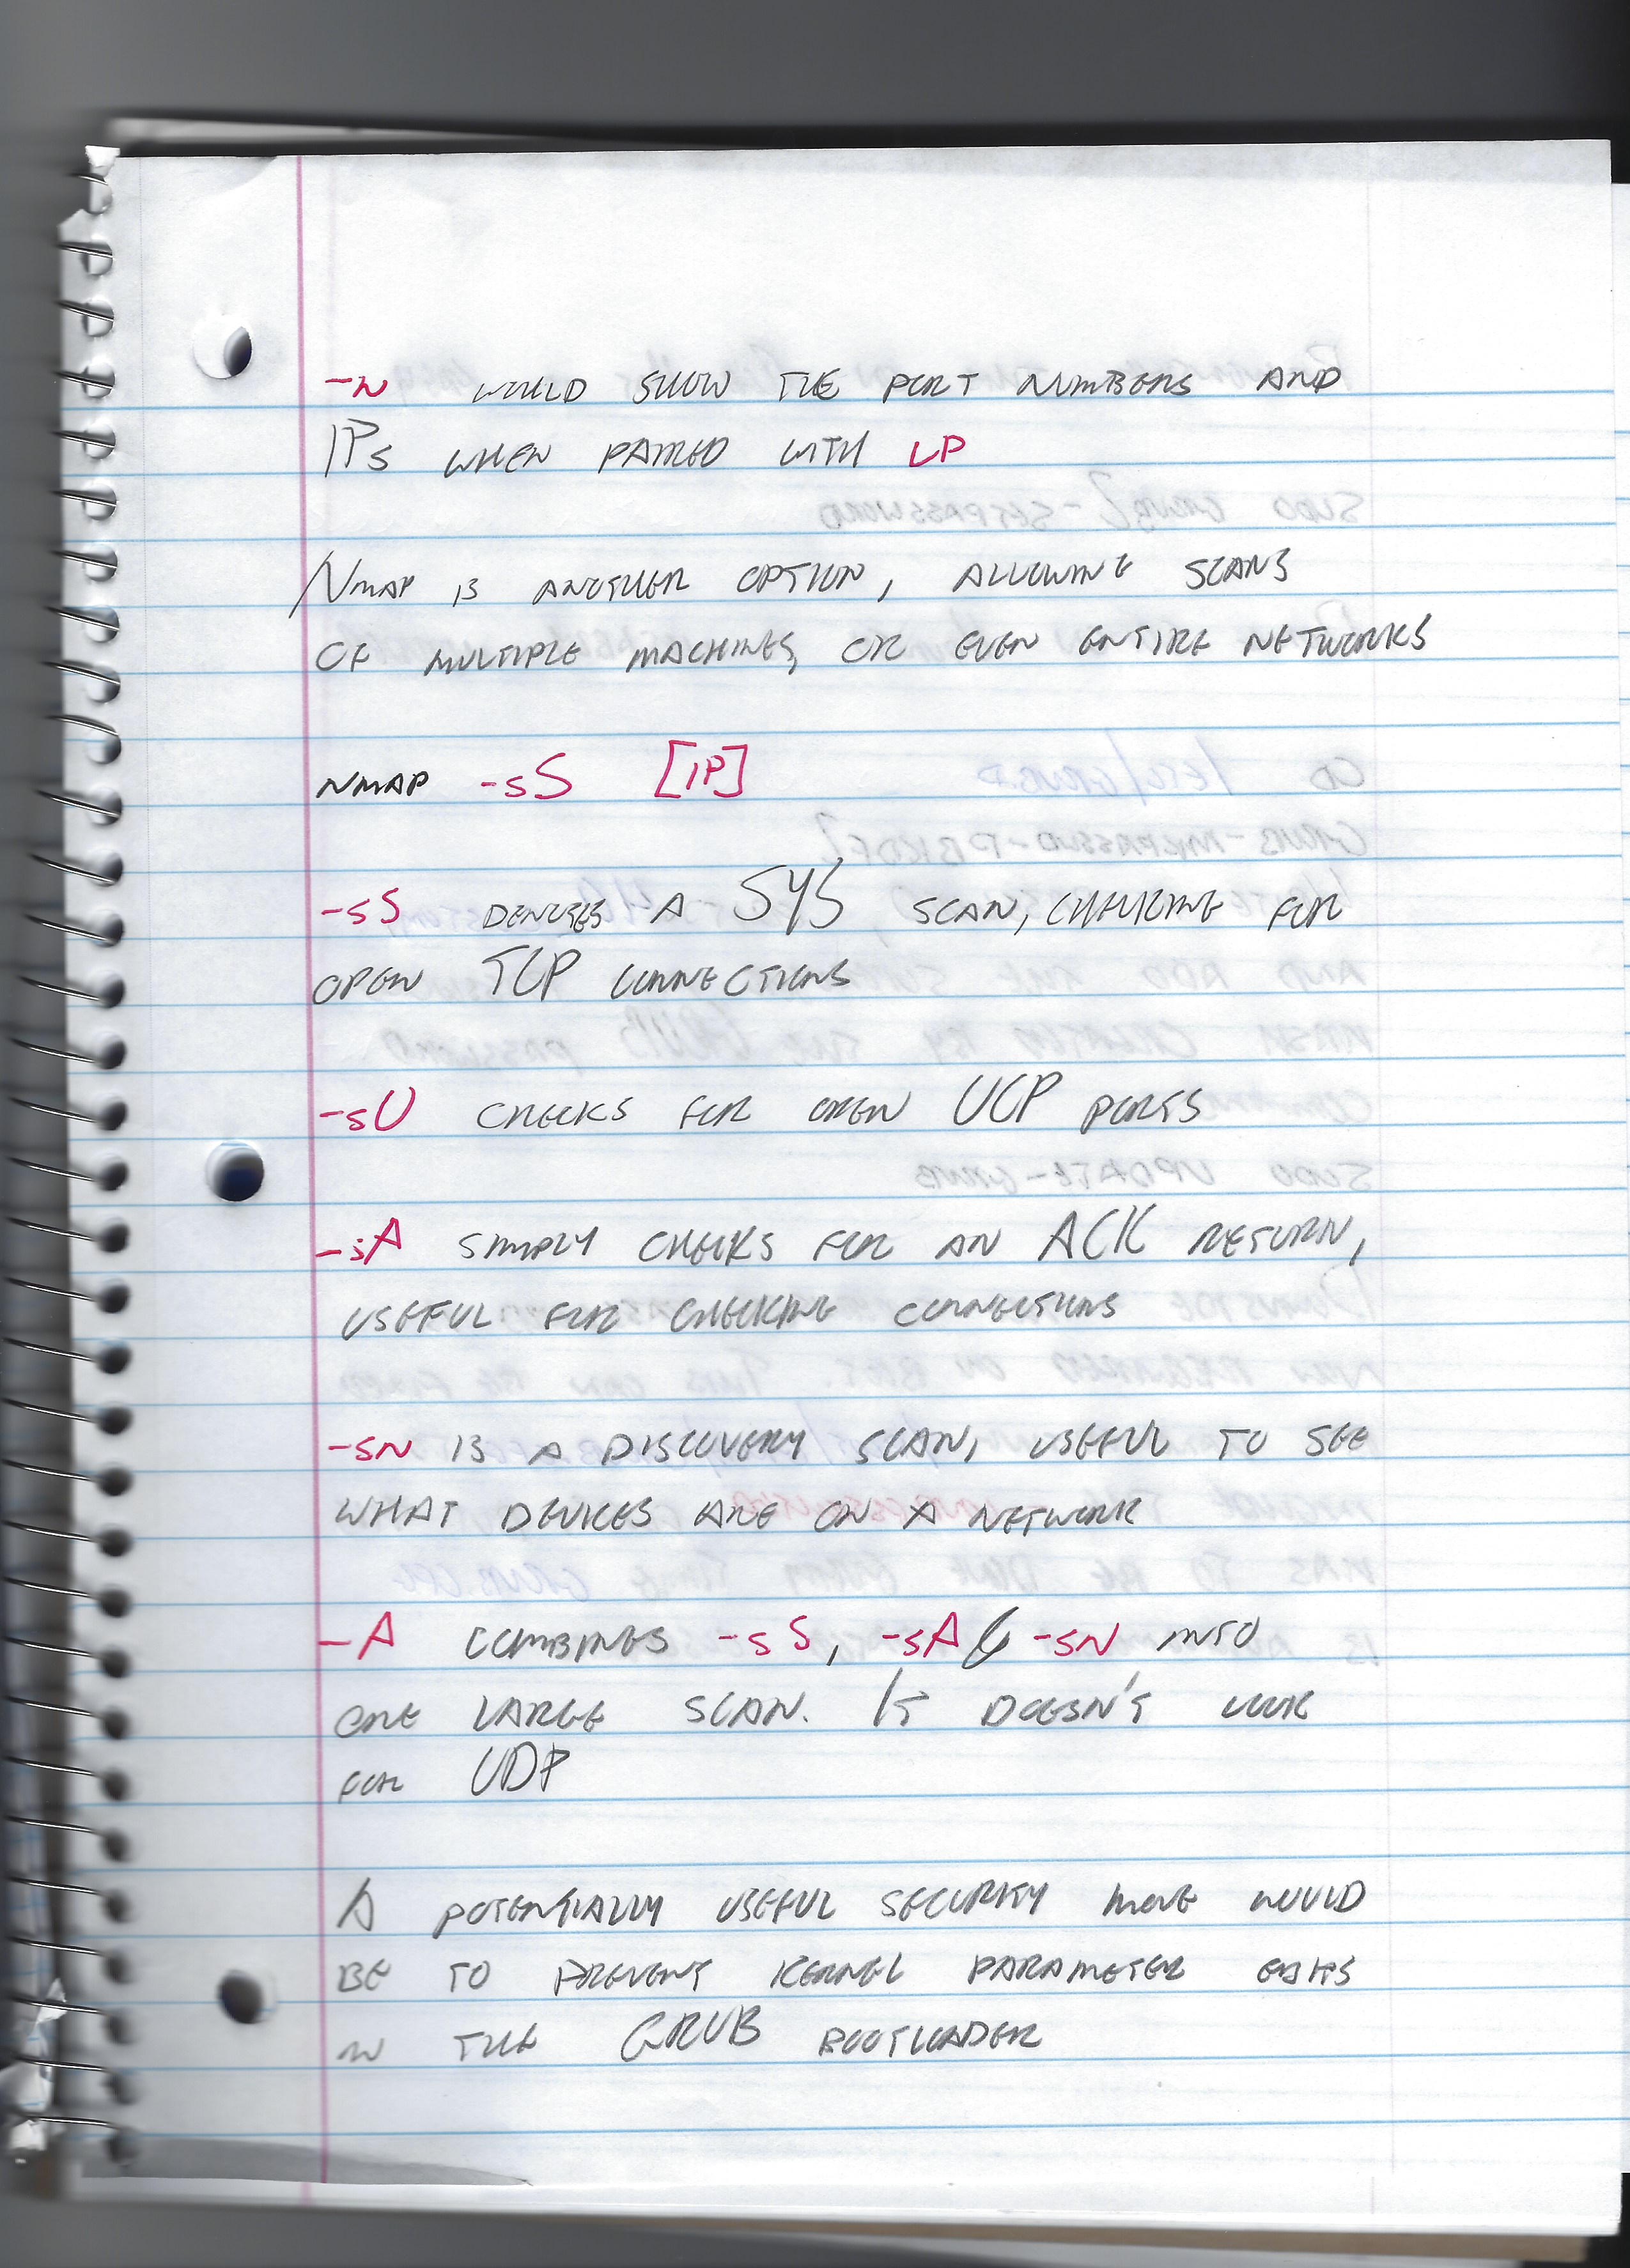 -N WOULD SHOW THE PORT NUMBERS AND
IPs WHEN PAIRED WITH LP
NMAP IS ANOTHER OPTION, ALLOWING SCANS
OF MULTIPLE MACHINES, OR EVEN ENTIRE NETWORKS
NMAP -sS [IP]
-sS DENOTES A SYS SCAN, CHECKING FOR
OPEN TCP CONNECTIONS
-sU CHECKS FOR OPEN UCP PORTS
-sA SIMPLY CHECKS FOR AN ACK RETURN,
USEFUL FOR CHECKING CONNECTIONS
-SN IS A DISCOVERY SCAN, USEFUL TO SEE
WHAT DEVICES ARE ON A NETWORK
-A COMBINES -sS, -sA & -SN INTO
ONE LARGE SCAN. IT DOESN'T LOOK
FOR UDP
A POTENTIALLY USEFUL SECURITY MOVE WOULD
BE TO PREVENT KERNEL PARAMETER EDITS
IN THE GRUB BOOTLOADER